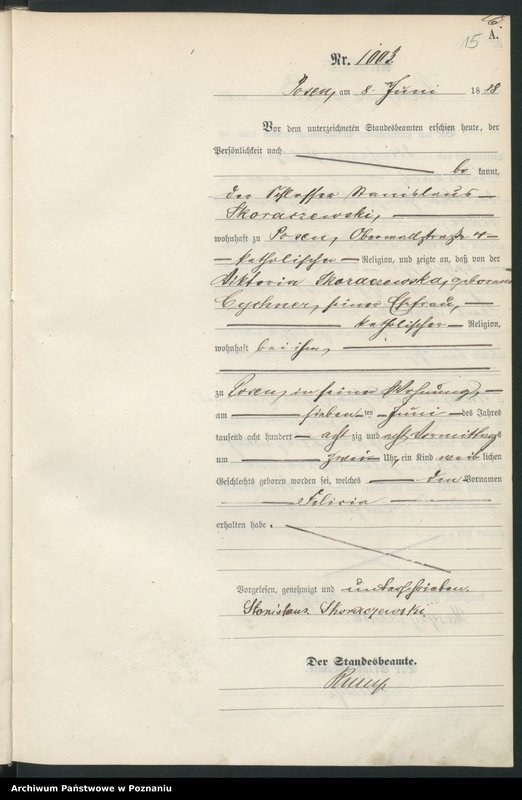 15
A.
Nr. 1003
Posen, am 8. Juni 1888
Vor dem unterzeichneten Standesbeamten erschien heute, der
Persönlichkeit nach
be kannt,
der Schlosser Stanislaus
Skoraczewski,
wohnhaft zu Posen, Oberwallstraße 4
katholischer Religion, und zeigte an, daß von der
Viktoria Skoraczewska, geborenen
Cychner, seiner Ehefrau,
katholischer Religion,
wohnhaft bei ihm,
zu Posen, in seiner Wohnung,
am sieben ten Juni des Jahres
tausend acht hundert acht zig und acht, Vormittags
um zwei Uhr, ein Kind weib lichen
Geschlechts geboren worden sei, welches den Vornamen
Felicia
erhalten habe.
Vorgelesen, genehmigt und unterschrieben.
Stanislaus Skoraczewski
Der Standesbeamte.
Archiwum Państwowe w Poznaniu